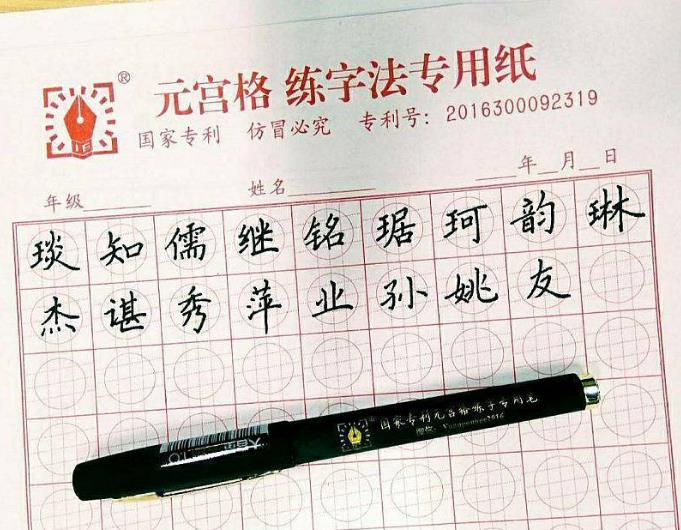 ®
元宫格 练字法专用纸
国家专利 仿冒必究 专利号：2016300092319
年级 姓名 年 月 日
琰 知 儒 继 铭 琚 珂 韵 琳
杰 谌 秀 萍 业 孙 姚 友
国家专利元宫格练字专用笔